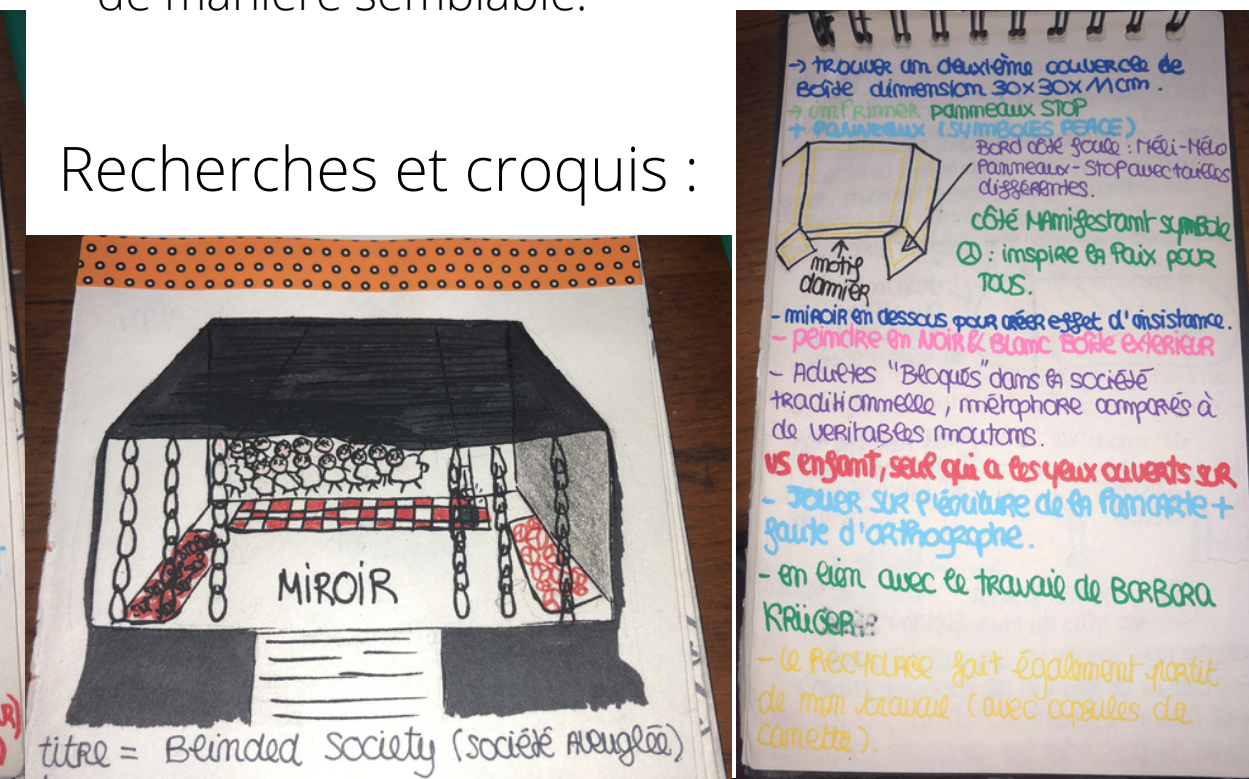 de manière semblable.
Recherches et croquis :
MIROIR
titre = Blinded Society (société aveuglée)
→ trouver un deuxième couvercle de
Boîte dimension 30x30x11cm.
→ imprimer panneaux STOP
+ PANNEAUX (SYMBOLES PEACE)
BORD côté foule : Méli-Mélo
Panneaux-STOP avec tailles
différentes.
côté MAnifestant symbole
☮ : inspire la Paix pour
TOUS.
motif
damier
- miroir en dessous pour créer effet d'insistance.
- peindre en NOIR & Blanc Boîte exterieur
- Adultes "Bloqués" dans la société
traditionnelle, métaphore comparés à
de veritables moutons.
vs enfant, seul qui a les yeux ouverts sur
- Jouer sur l'écriture de la Pancarte +
faute d'orthographe.
- en lien avec le travail de BARBARA
KRÜGER.
- le RECYCLAGE fait également partit
de mon travail (avec capsules de
canette).